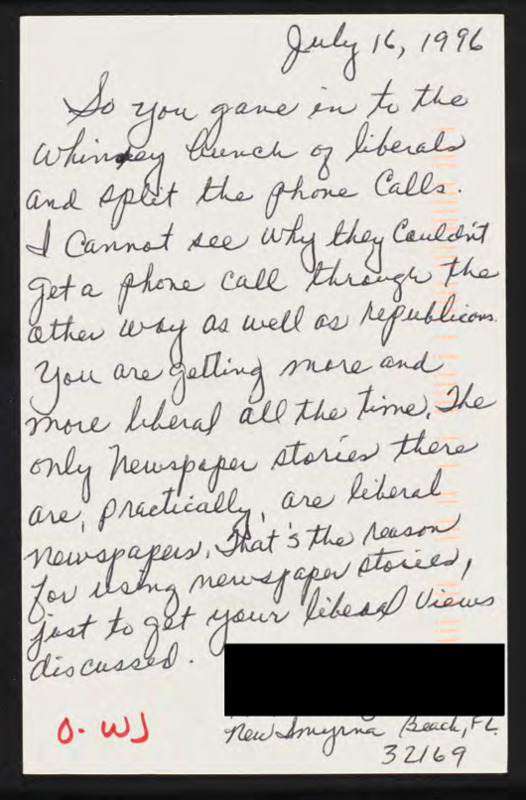 July 16, 1996
So you gave in to the
whiney bunch of liberals
and split the phone calls.
I cannot see why they couldn't
get a phone call through the
other way as well as republicans.
You are getting more and
more liberal all the time. The
only newspaper stories there
are, practically, are liberal
newspapers. That's the reason
for using newspaper stories,
just to get your liberal views
discussed.
O. WJ
New Smyrna Beach, FL.
32169